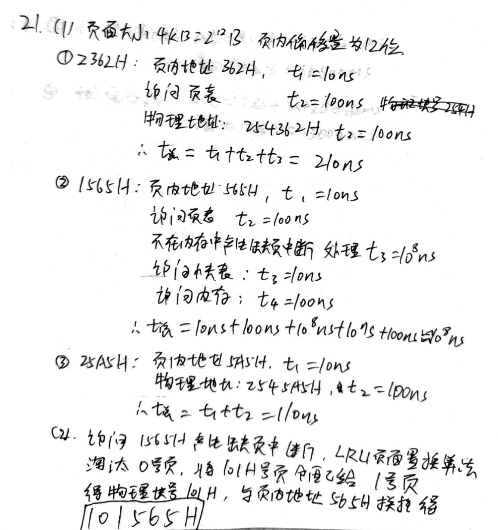 21. (1) 页面大小: 4KB=2¹²B 页内偏移量为12位
① 2362H: 页内地址 362H, t₁=10ns
访问页表 t₂=100ns
物理地址: 254362H t₃=100ns
∴ t总 = t₁+t₂+t₃ = 210ns
② 1565H: 页内地址 565H, t₁=10ns
访问页表 t₂=100ns
不在内存中产生缺页中断 处理 t₃=10⁸ns
访问快表: t₃=10ns
访问内存: t₄=100ns
∴ t总=10ns+100ns+10⁸ns+10ns+100ns≈10⁸ns
③ 25A5H: 页内地址 5A5H. t₁=10ns
物理地址: 2545A5H, t₂=100ns
∴ t总 = t₁+t₂ = 110ns
(2). 访问 1565H 产生缺页中断, LRU页面置换算法
淘汰 0号页, 将 101H号页 分配给 1号页
得物理块号 101H, 与页内地址 565H 拼接 得
101565H